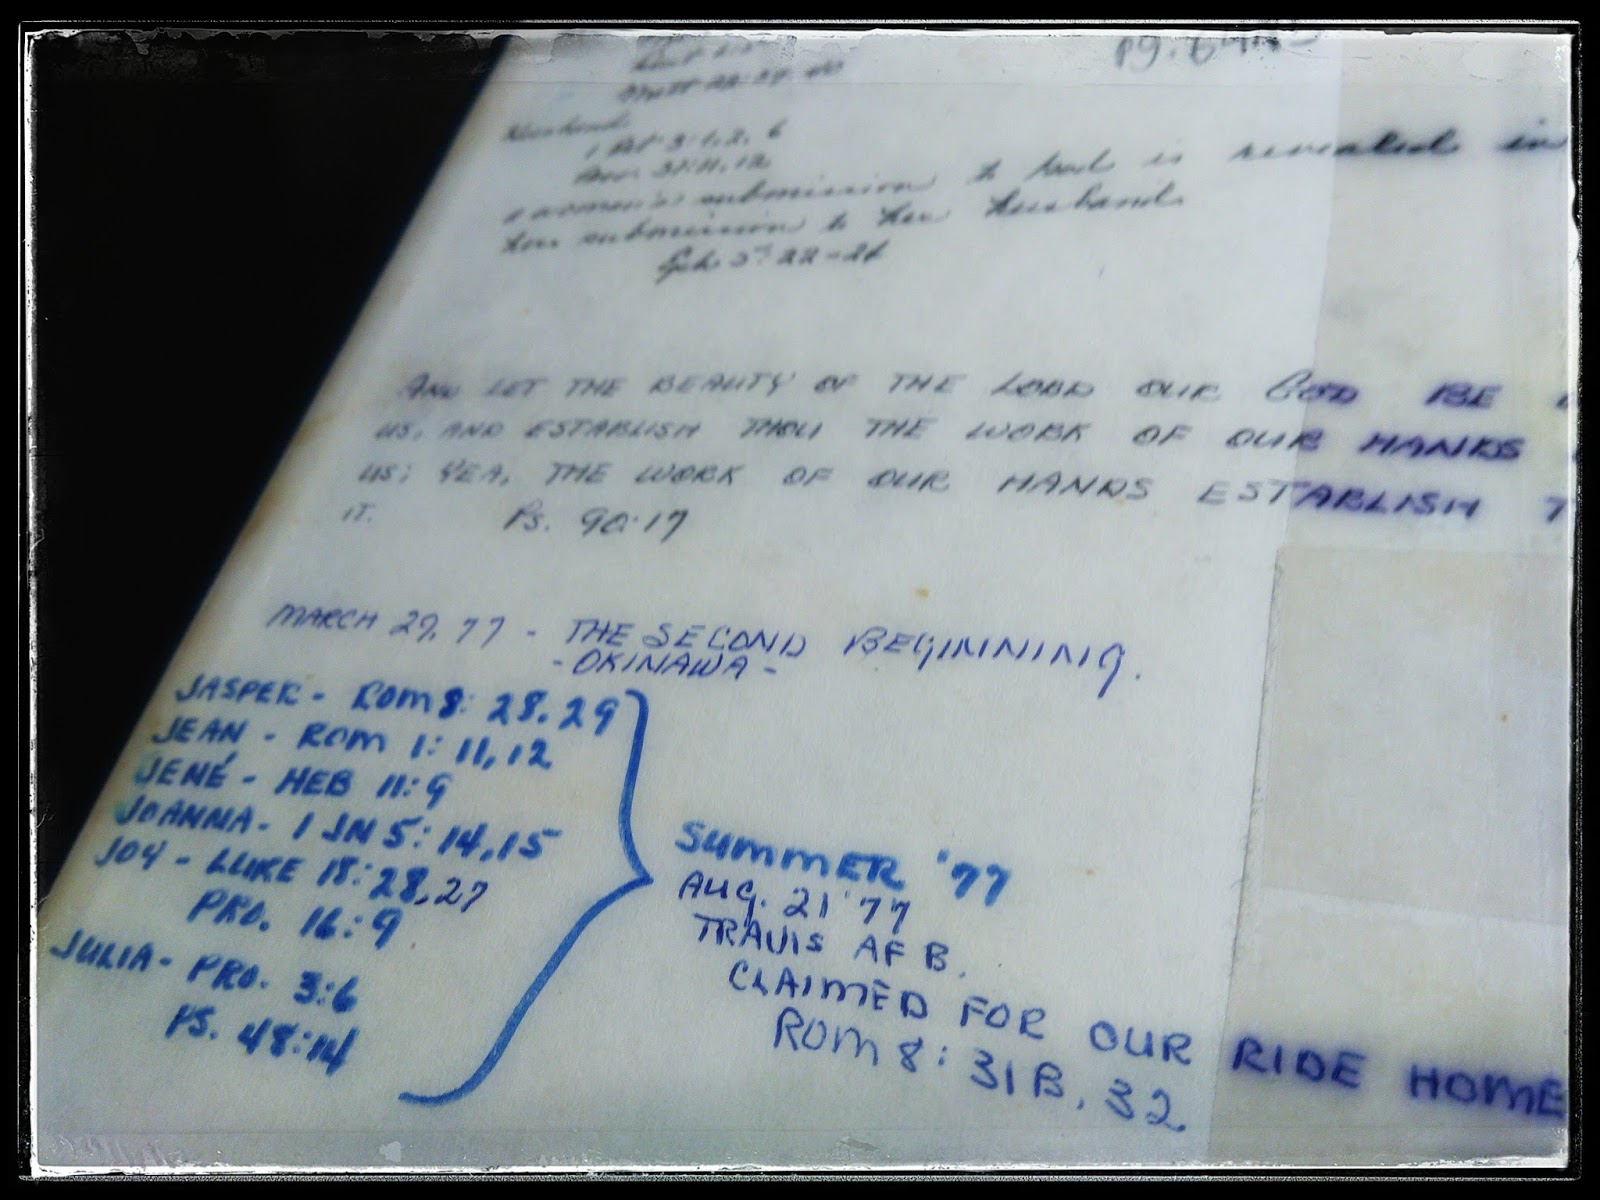 Matt 22:37-40
Husband
1 Pet 3:1,2,6
Prov. 31:11,12
a women's submission to God is revealed in
her submission to her husband
Eph 5:22-24
AND LET THE BEAUTY OF THE LORD OUR GOD BE
US, AND ESTABLISH THOU THE WORK OF OUR HANDS
US; YEA, THE WORK OF OUR HANDS ESTABLISH
IT. Ps. 90:17
MARCH 29, 77 - THE SECOND BEGINNING.
- OKINAWA -
JASPER - ROM 8: 28, 29
JEAN - ROM 1: 11, 12
JENÉ - HEB 11: 9
JOANNA - 1 JN 5: 14, 15
JOY - LUKE 18: 28, 27
PRO. 16: 9
JULIA - PRO. 3:6
PS. 48:14
SUMMER '77
AUG. 21 '77
TRAVIS AFB.
CLAIMED FOR OUR RIDE HOME
ROM 8: 31B, 32